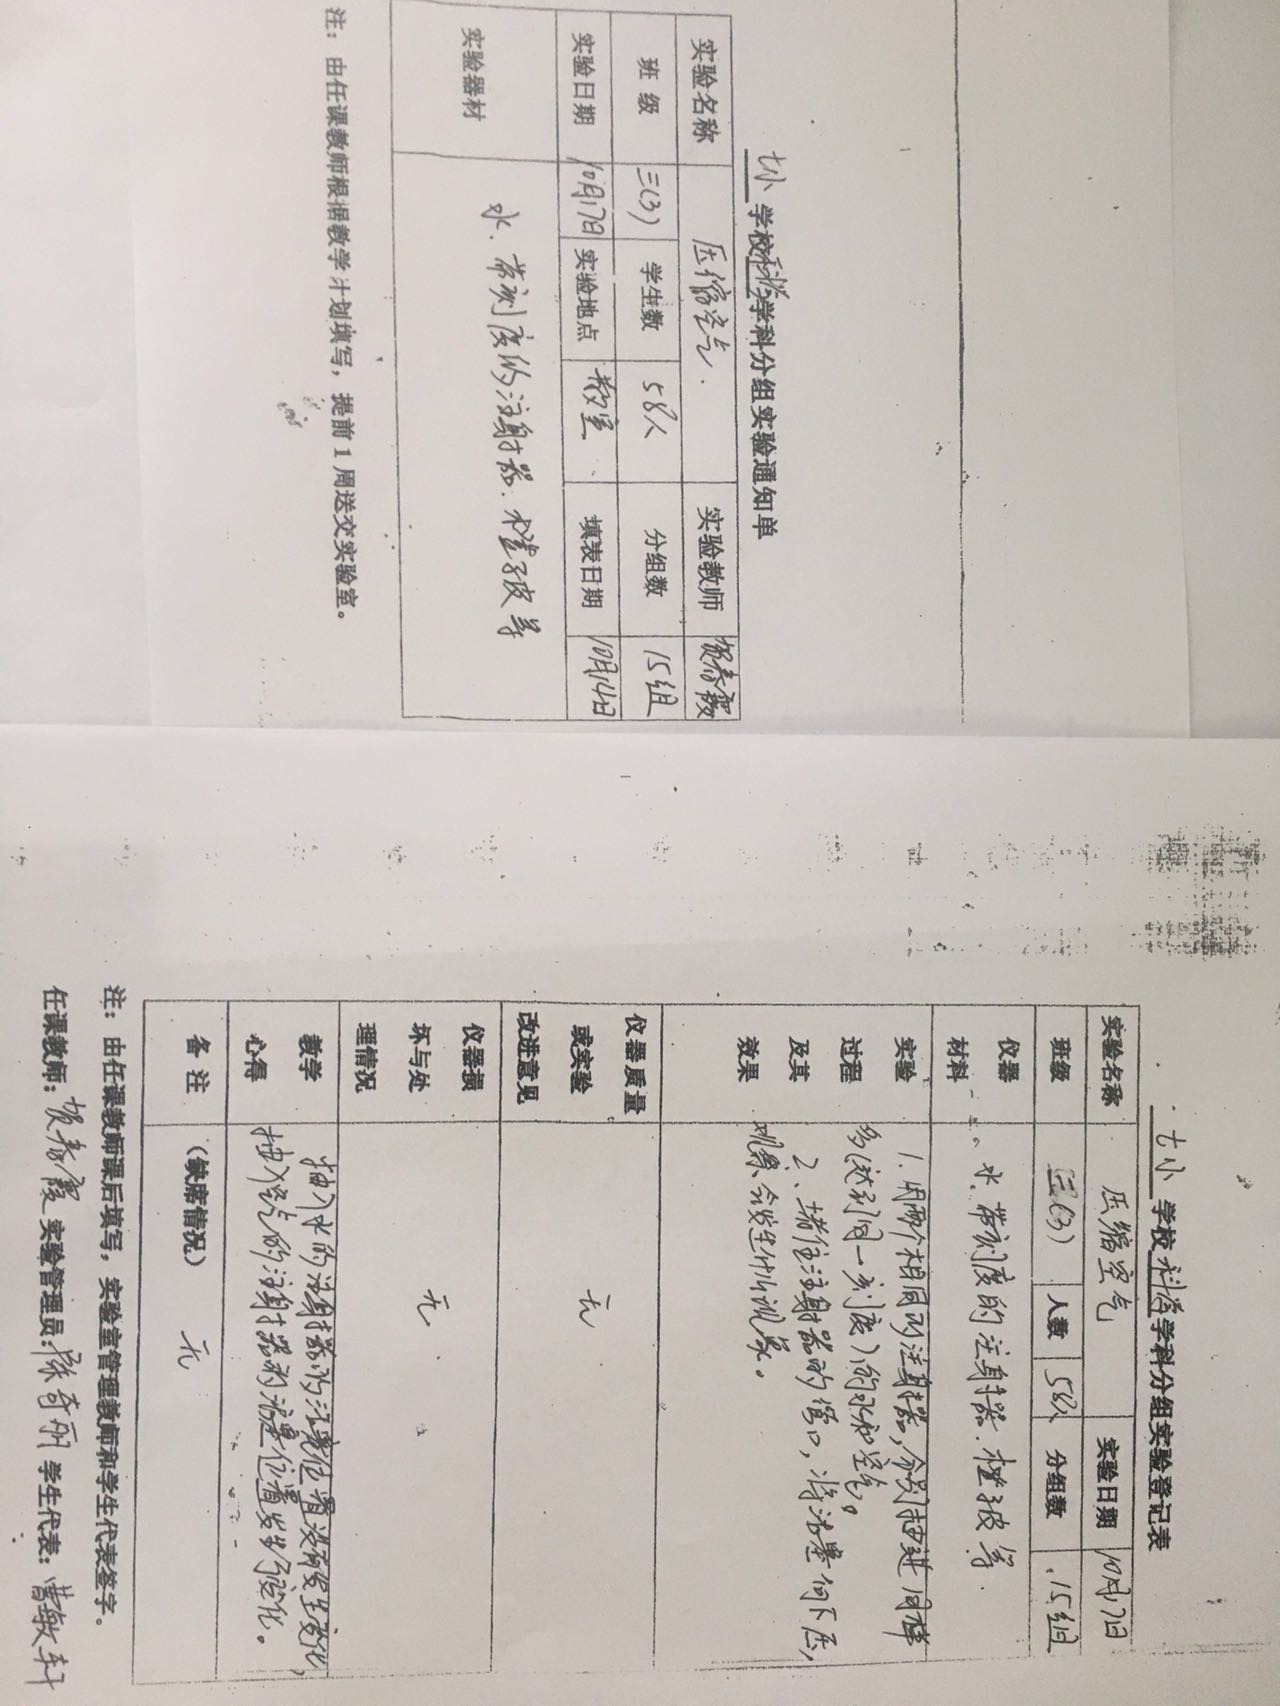 七小 学校科学学科分组实验通知单
实验名称 压缩空气. 实验教师 贺春霞
班级 三(3) 学生数 58人 分组数 15组
实验日期 10月17日 实验地点 教室 填表日期 10月14日
实验器材 水、带刻度的注射器、橙子皮等
注：由任课教师根据教学计划填写，提前1周送交实验室。
七小 学校科学学科分组实验登记表
实验名称 压缩空气 实验日期 10月17日
班级 三(3) 人数 58人 分组数 15组
仪器
材料
水、带刻度的注射器、橙子皮等.
实验
过程
及其
效果
1、用两个相同的注射器，分别抽进同样
多(达到同一刻度)的水和空气。
2、堵住注射器的管口，将活塞向下压，
观察会发生什么现象。
仪器质量
或实验
改进意见
无
仪器损
坏与处
理情况
无
教学
心得
抽入水的注射器的活塞位置没有发生变化，
抽入空气的注射器的活塞位置发生了变化。
备注 (缺席情况) 无
注：由任课教师课后填写，实验室管理教师和学生代表签字。
任课教师：贺春霞 实验管理员：奇丽 学生代表：曹敏轩